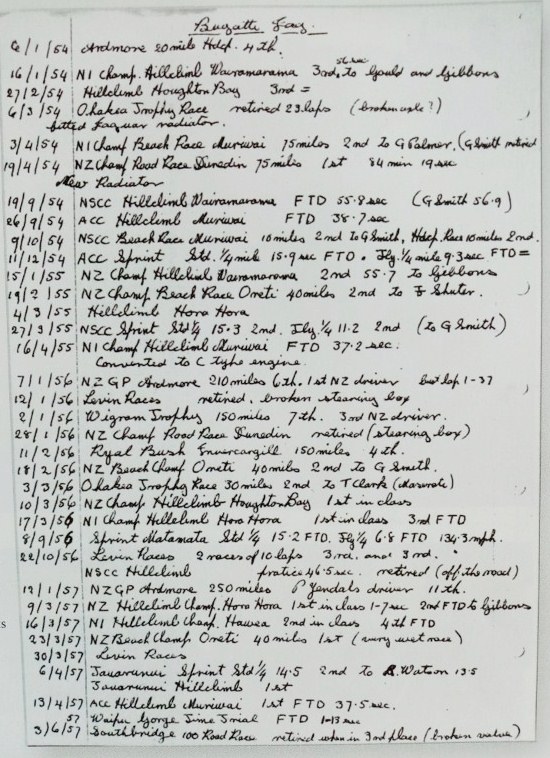 Bugatti Jag.
6/1/54 Ardmore 20 mile Hdcp. 4th.
56 sec
16/1/54 NI Champ. Hillclimb Wairamarama 3rd, to Gould and Gibbons
27/2/54 Hillclimb Houghton Bay 3rd =
6/3/54 Ohakea Trophy Race retired 23 laps (broken axle?)
fitted Jaguar radiator.
3/4/54 NI Champ Beach Race Muriwai 75 miles 2nd to G Palmer. (G Smith retired
19/4/54 NZ Champ Road Race Dunedin 75 miles 1st 84 min 19 sec
New Radiator
19/9/54 NSCC Hillclimb Wairamarama FTD 55.8 sec (G Smith 56.9)
26/9/54 ACC Hillclimb Muriwai FTD 38.7 sec
9/10/54 NSCC Beach Race Muriwai 10 miles 2nd to G Smith, Hdcp. Race 10 miles 2nd.
11/12/54 ACC Sprint Std. 1/4 mile 15.9 sec FTD. Fly. 1/4 mile 9.3 sec FTD =
15/1/55 NZ Champ Hillclimb Wairamarama 2nd 55.7 to Gibbons
19/2/55 NZ Champ Beach Race Oreti 40 miles 2nd to F Shuter.
4/3/55 Hillclimb Hora Hora
27/3/55 NSCC Sprint Std 1/4 15.3 2nd. Fly. 1/4 11.2 2nd (to G Smith)
16/4/55 NI Champ Hillclimb Muriwai FTD 37.2 sec.
Converted to C type engine.
7/1/56 NZ GP Ardmore 210 miles 6th. 1st NZ driver best lap 1-37
12/1/56 Levin Races retired, broken steering box
2/1/56 Wigram Trophy 150 miles 7th. 3rd NZ driver.
28/1/56 NZ Champ Road Race Dunedin retired (steering box)
11/2/56 Ryal Bush Invercargill 150 miles 4th.
18/2/56 NZ Beach Champ Oreti 40 miles 2nd to G Smith.
3/3/56 Ohakea Trophy Race 30 miles 2nd to T Clark (Maserati)
10/3/56 NZ Champ Hillclimb Houghton Bay 1st in class
17/3/56 NI Champ Hillclimb Hora Hora 1st in class 3rd FTD
8/9/56 Sprint Matamata Std 1/4 15.2 FTD. Fly 1/4 6.8 FTD 134.3 mph.
22/10/56 Levin Races 2 races of 10 laps 3rd. and 3rd.
NSCC Hillclimb pratice 46.5 sec. retired (off the road)
12/1/57 NZGP Ardmore 250 miles P Yendals driver 11th.
9/3/57 NZ Hillclimb Champ. Hora Hora 1st in class 1-7 sec 2nd FTD to Gibbons
16/3/57 NI Hillclimb Champ. Hawea 2nd in class 4th FTD
23/3/57 NZ Beach Champ Oreti 40 miles 1st (very wet race)
30/3/57 Levin Races
6/4/57 Tauaranui Sprint Std 1/4 14.5 2nd to R. Watson 13.5
Tauaranui Hillclimb 1st
13/4/57 ACC Hillclimb Muriwai 1st FTD 37.5 sec.
57 Waipu Gorge Time Trial FTD 1-13 sec
3/6/57 Southbridge 100 Road Race retired when in 3rd place (broken valve)
s